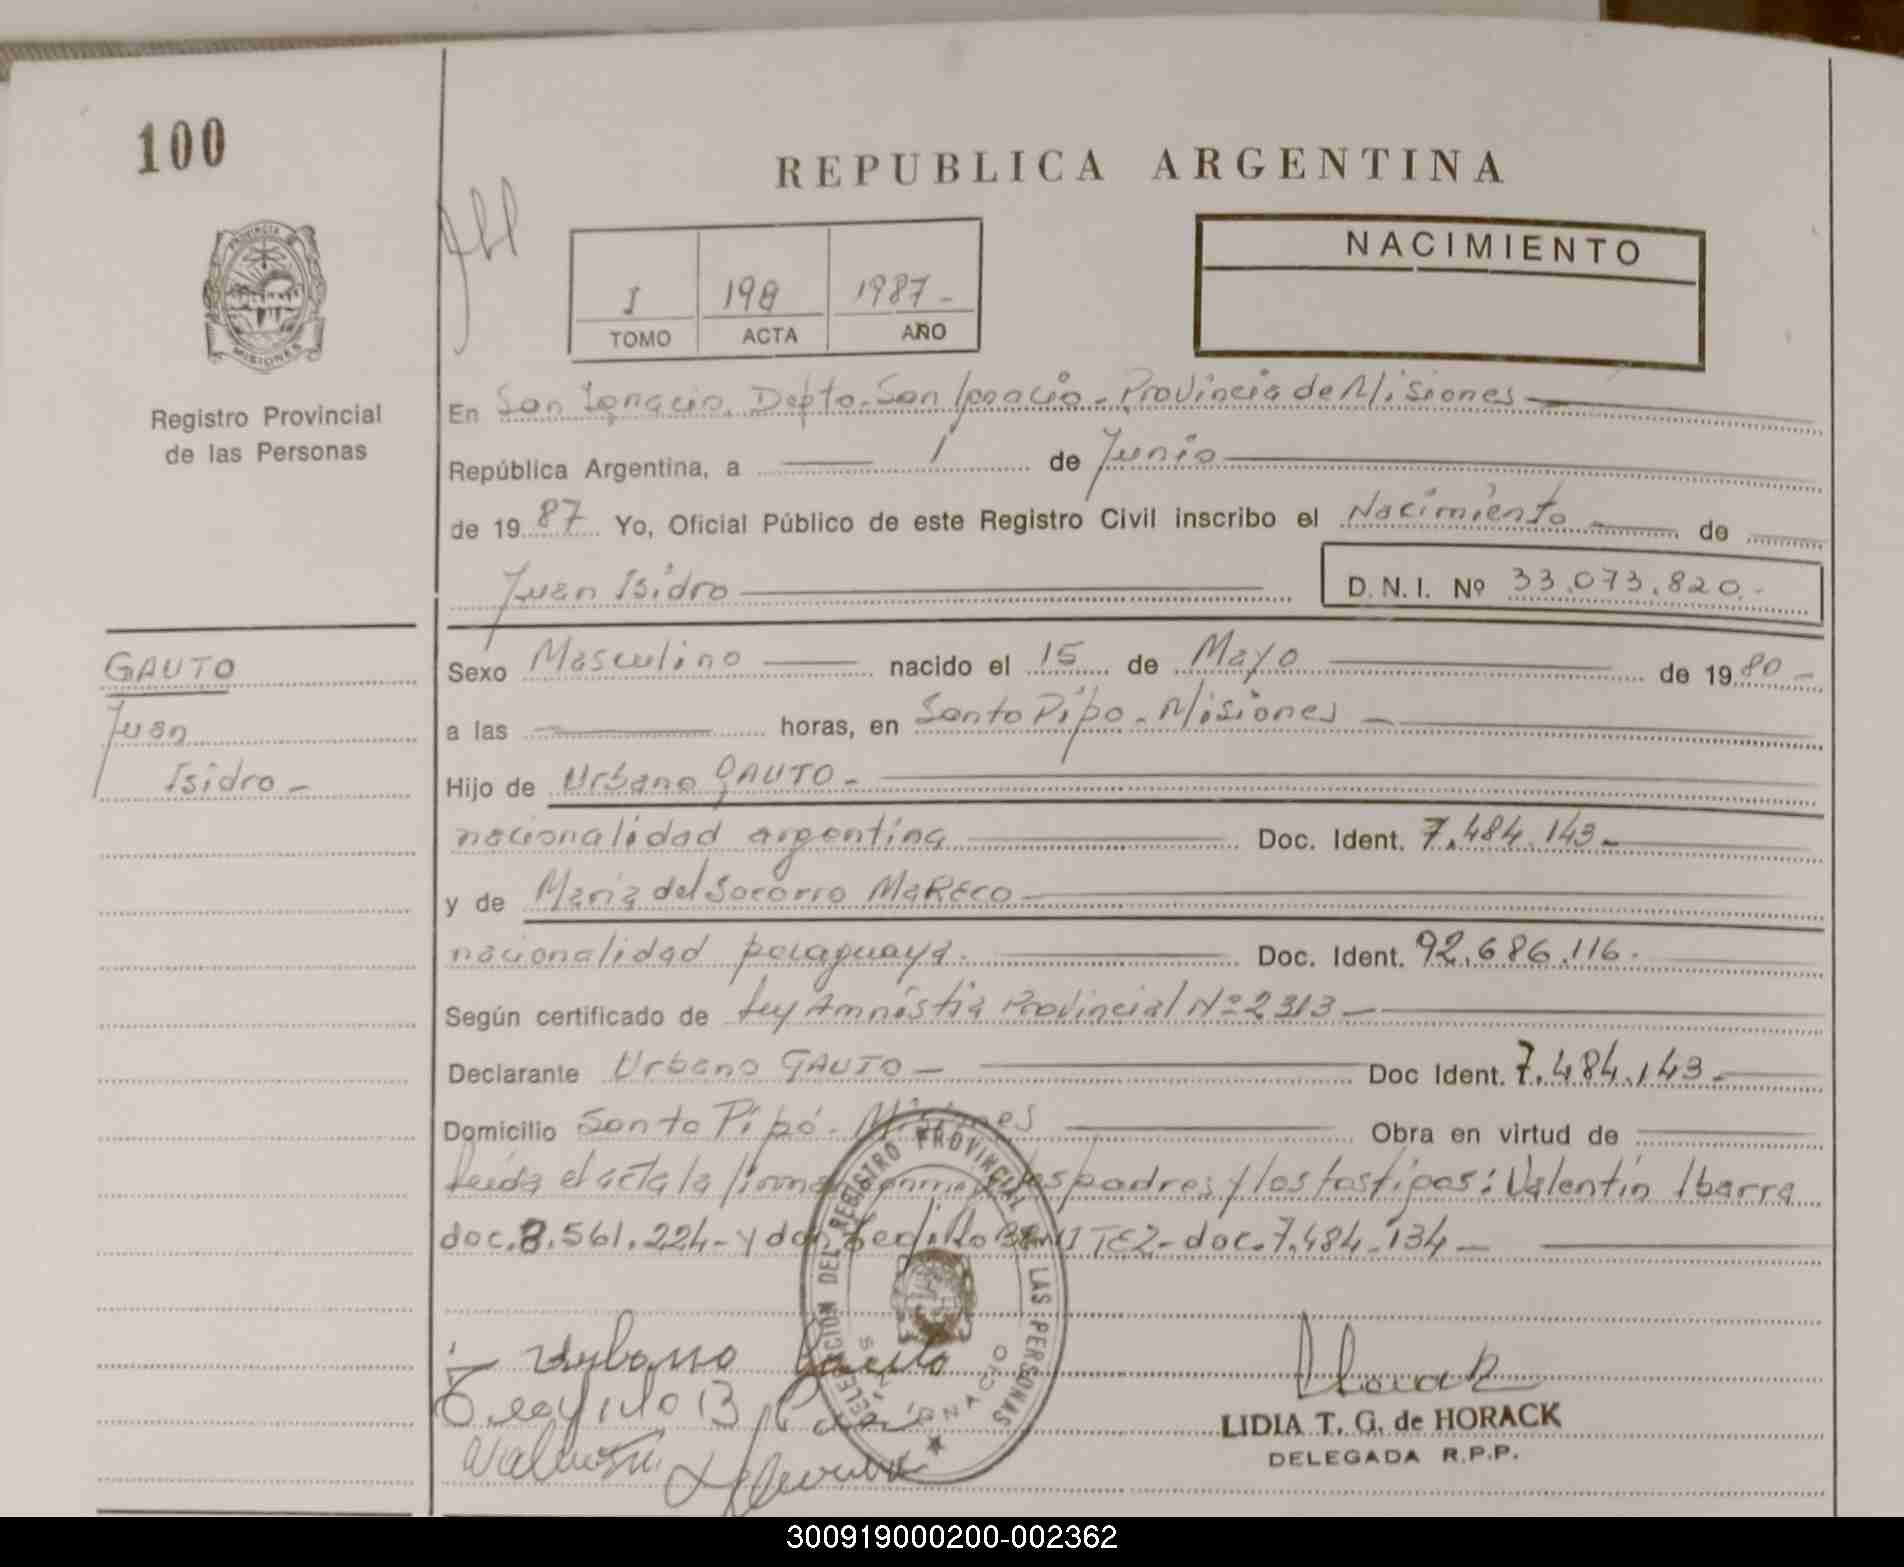 100
REPUBLICA ARGENTINA
PROVINCIA MISIONES
Registro Provincial
de las Personas
I 198 1987-
TOMO ACTA AÑO
NACIMIENTO
En San Ignacio, Depto. San Ignacio - Provincia de Misiones
República Argentina, a 1 de Junio
de 19 87 Yo, Oficial Público de este Registro Civil inscribo el Nacimiento de
Juan Isidro D.N.I. Nº 33.073.820.-
GAUTO
Juan
Isidro -
Sexo Masculino nacido el 15 de Mayo de 19 80 -
a las horas, en Santo Pipo - Misiones -
Hijo de Urbano GAUTO -
nacionalidad argentina Doc. Ident. 7.484.143 -
y de Maria del Socorro MARECO
nacionalidad paraguaya. Doc. Ident. 92.686.116.
Según certificado de Ley Amnistia Provincial Nº 2313 -
Declarante Urbano GAUTO - Doc Ident. 7.484.143 -
Domicilio Santo Pipó - Misiones Obra en virtud de
Leída el acta la padres y los testigos: Valentín Ibarra
doc. 8.561.224 - y don BENITEZ - doc. 7.484.134 -
DELEGACION DEL REGISTRO PROVINCIAL DE LAS PERSONAS
SAN IGNACIO
Urbano Gauto
LIDIA T. G. de HORACK
DELEGADA R.P.P.
300919000200-002362